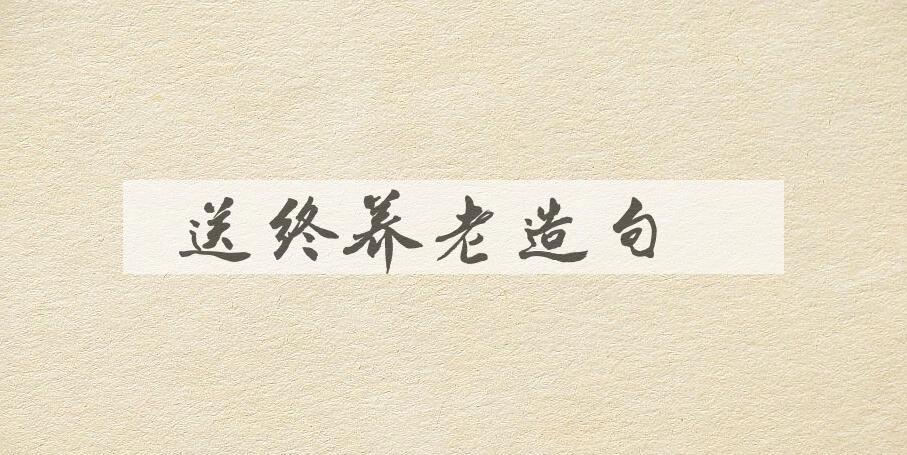 送终养老造句